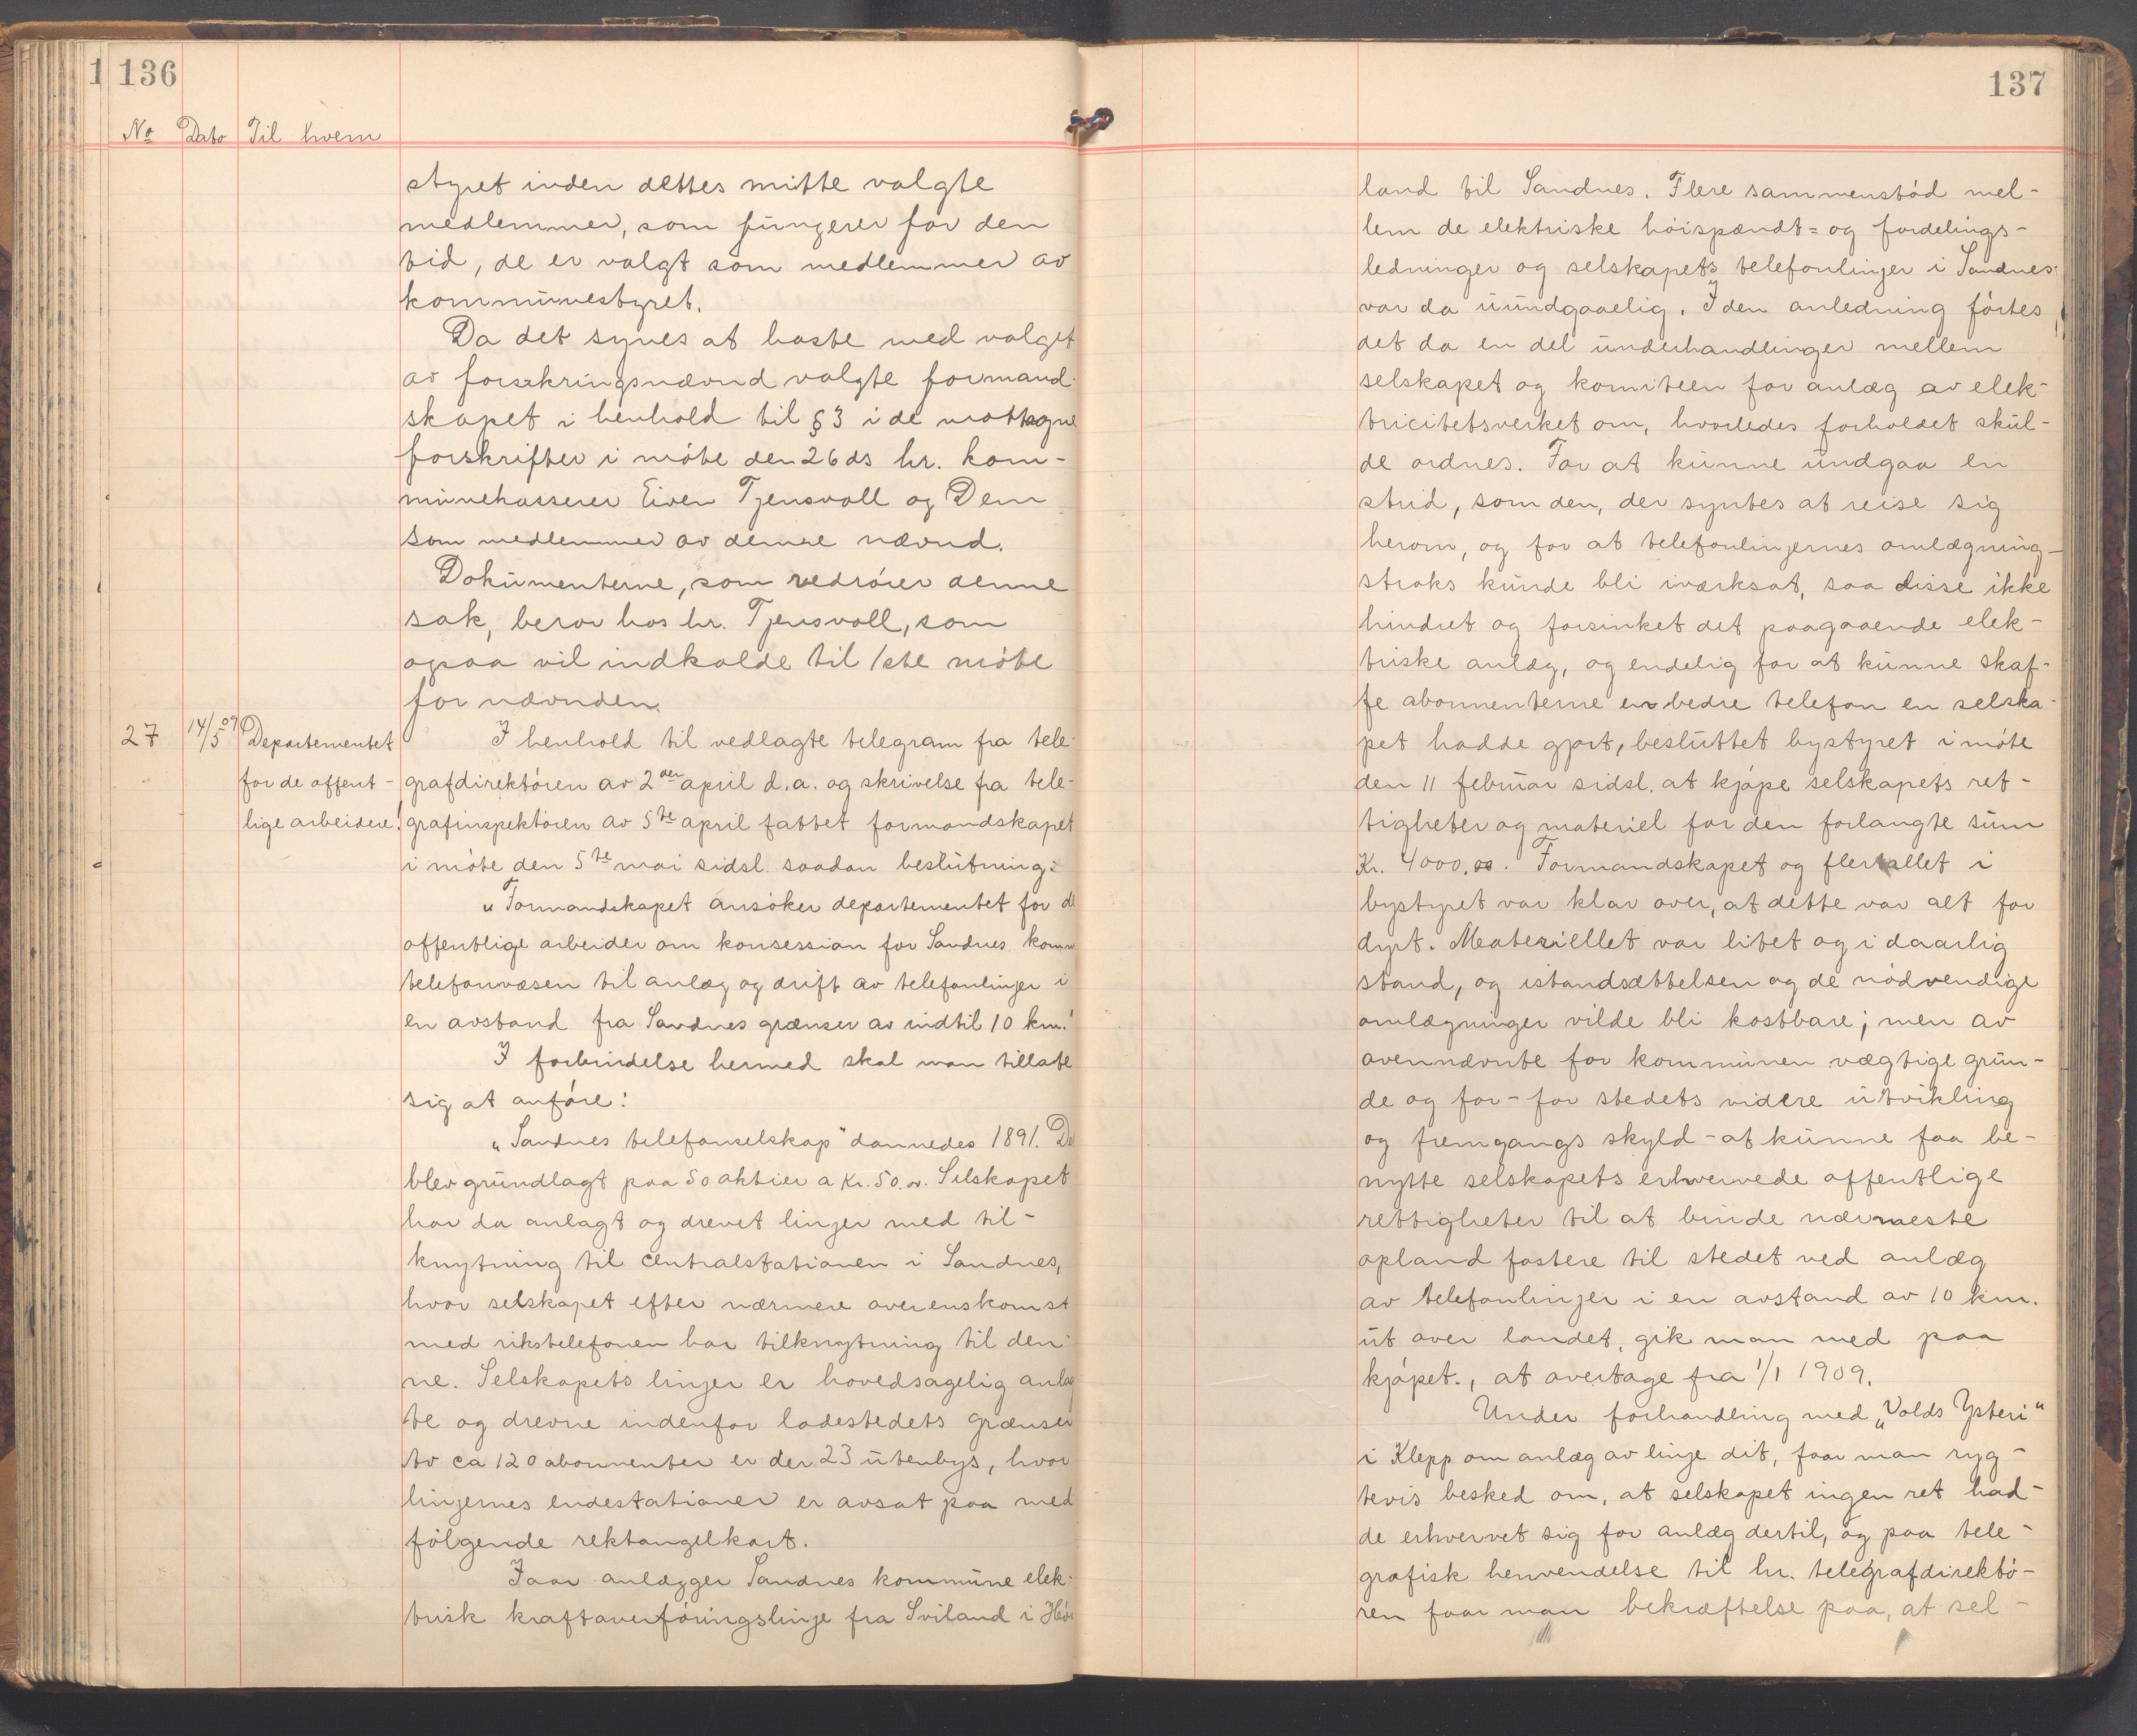 1 136
No Dato Til hvem
styret inden dettes mitte valgte
medlemmer, som fungerer for den
tid, de er valgt som medlemmer av
kommunestyret.
Da det synes at haste med valget
av forsikringsnævnd valgte formand-
skapet i henhold til § 3 i de mottagne
forskrifter i møte den 26 ds hr. kom-
munekasserer Eiven Tjensvoll og Dem
som medlemmer av denne nævnd.
Dokumenterne, som vedrører denne
sak, beror hos hr. Tjensvoll, som
ogsaa vil indkalde til 1ste møte
for nævnden.
27 14/5 09 Departementet
for de offent-
lige arbeidere!
I henhold til vedlagte telegram fra tele-
grafdirektøren av 2den april d.a. og skrivelse fra tele-
grafinspektøren av 5te april fattet formandskapet
i møte den 5te mai sidsl. saadan beslutning:
"Formandskapet ansøker departementet for de
offentlige arbeider om konsession for Sandnes komm
telefonvæsen til anlæg og drift av telefonlinjer i
en avstand fra Sandnes grænser av indtil 10 km."
I forbindelse hermed skal man tillate
sig at anføre:
"Sandnes telefonselskap" dannedes 1891. De
blev grundlagt paa 50 aktier a Kr. 50.oo. Selskapet
har da anlagt og drevet linjer med til-
knytning til centralstationen i Sandnes,
hvor selskapet efter nærmere overenskomst
med rikstelefonen har tilknytning til den-
ne. Selskapets linjer er hovedsagelig anlag
te og drevne indenfor ladestedets grænser
Av ca 120 abonnenter er der 23 utenbys, hvor
linjernes endestationer er avsat paa med
følgende rektangelkart.
Iaar anlægger Sandnes kommune elek-
trisk kraftoverføringslinje fra Sviland i Høi
137
land til Sandnes. Flere sammenstød mel-
lem de elektriske høispændt= og fordelings-
ledninger og selskapets telefonlinjer i Sandnes
var da uundgaaelig. I den anledning førtes
det da en del underhandlinger mellem
selskapet og komiteen for anlæg av elek-
tricitetsverket om, hvorledes forholdet skul-
de ordnes. For at kunne undgaa en
strid, som den, der syntes at reise sig
herom, og for at telefonlinjernes omlægning
straks kunde bli iværksat, saa disse ikke
hindret og forsinket det paagaaende elek-
triske anlæg, og endelig for at kunne skaf-
fe abonnenterne en bedre telefon en selska-
pet hadde gjort, besluttet bystyret i møte
den 11 februar sidsl. at kjøpe selskapets ret-
tigheter og materiel for den forlangte sum
Kr. 4000.oo. Formandskapet og flertallet i
bystyret var klar over, at dette var alt for
dyrt. Materiellet var litet og i daarlig
stand, og istandsættelsen og de nødvendige
omlægninger vilde bli kostbare; men av
ovennævnte for kommunen vægtige grun-
de og for - for stedets videre utvikling
og fremgangs skyld - at kunne faa be-
nytte selskapets erhvervede offentlige
rettigheter til at binde nærmeste
opland fastere til stedet ved anlæg
av telefonlinjer i en avstand av 10 km.
ut over landet, gik man med paa
kjøpet., at overtage fra 1/1 1909.
Under forhandling med "Volds Ysteri"
i Klepp om anlæg av linje dit, faar man ryg-
tevis besked om, at selskapet ingen ret had-
de erhvervet sig for anlæg dertil, og paa tele-
grafisk henvendelse til hr. telegrafdirektø-
ren faar man bekræftelse paa, at sel-